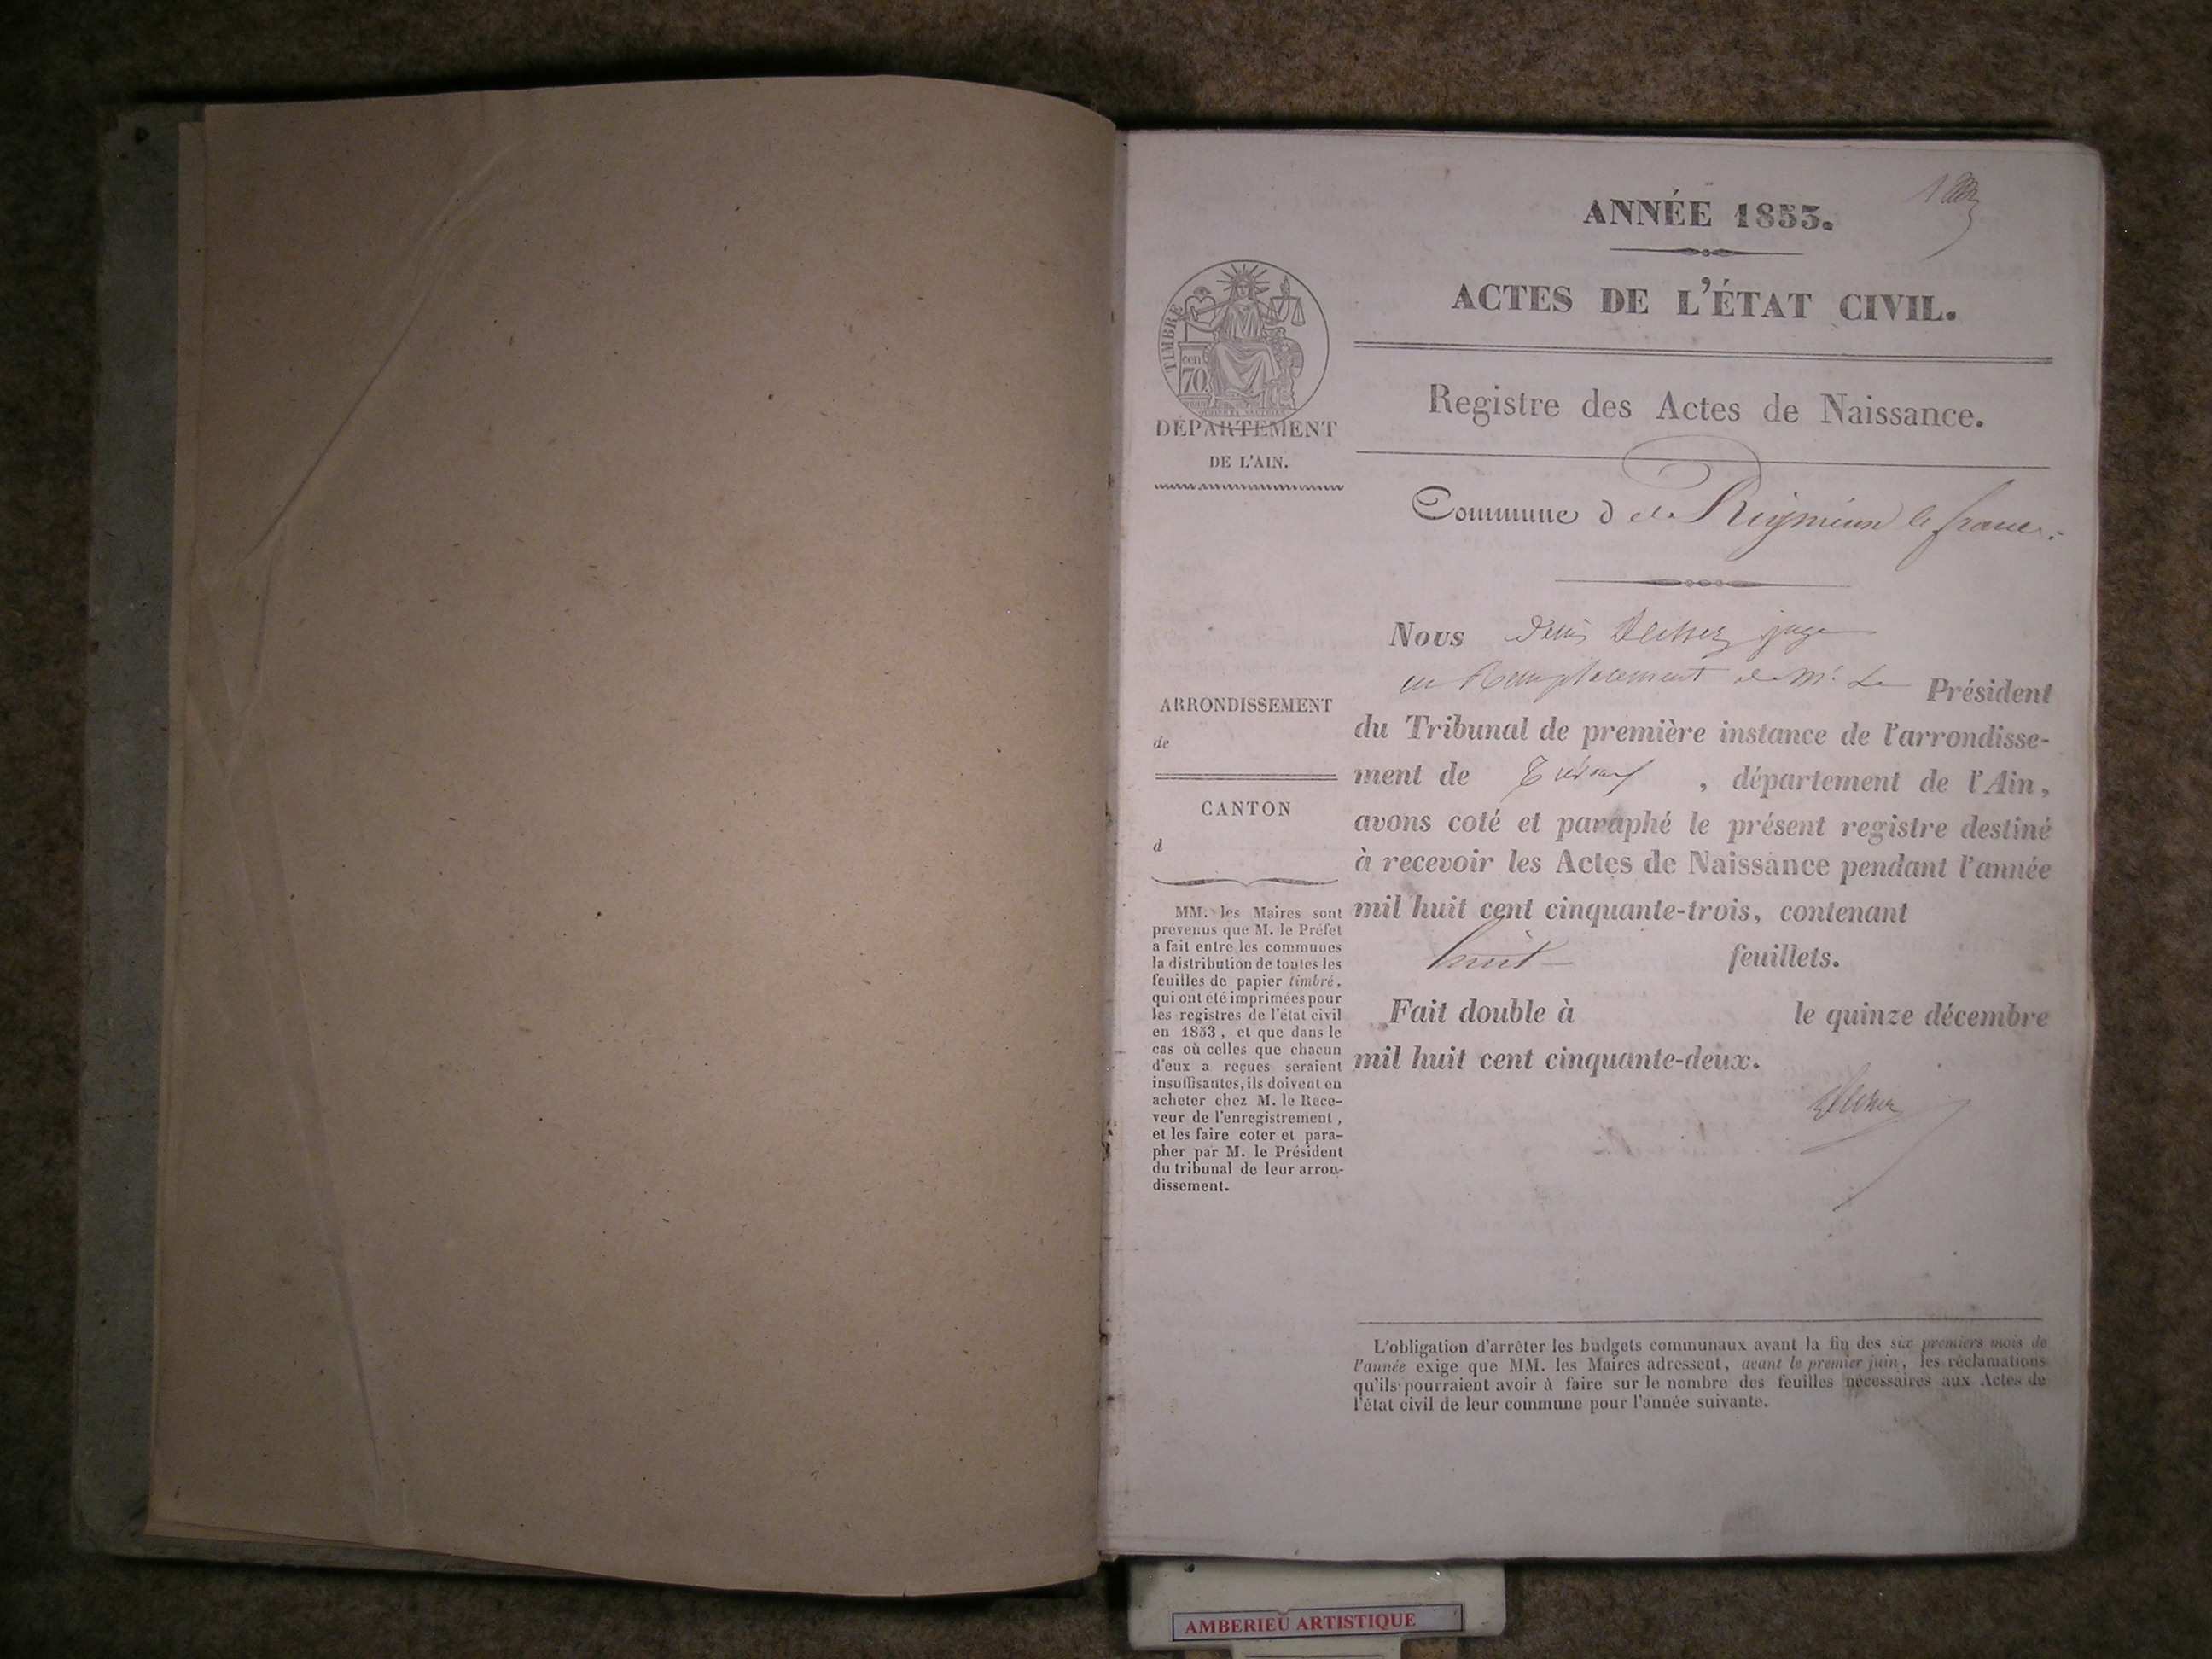 ANNÉE 1853.
ACTES DE L'ÉTAT CIVIL.
Registre des Actes de Naissance.
TIMBRE
cen
70
DÉPARTEMENT
DE L'AIN.
Commune d de Rignieux le franc.
Nous Denis juge
en Remplacement de Mr Le Président
du Tribunal de première instance de l'arrondisse-
ment de Trévoux, département de l'Ain,
avons coté et paraphé le présent registre destiné
à recevoir les Actes de Naissance pendant l'année
mil huit cent cinquante-trois, contenant
huit feuillets.
Fait double à le quinze décembre
mil huit cent cinquante-deux.
ARRONDISSEMENT
de
CANTON
d
MM. les Maires sont
prévenus que M. le Préfet
a fait entre les communes
la distribution de toutes les
feuilles de papier timbré,
qui ont été imprimées pour
les registres de l'état civil
en 1853, et que dans le
cas où celles que chacun
d'eux a reçues seraient
insuffisantes, ils doivent en
acheter chez M. le Rece-
veur de l'enregistrement,
et les faire coter et para-
pher par M. le Président
du tribunal de leur arron-
dissement.
L'obligation d'arrêter les budgets communaux avant la fin des six premiers mois de
l'année exige que MM. les Maires adressent, avant le premier juin, les réclamations
qu'ils pourraient avoir à faire sur le nombre des feuilles nécessaires aux Actes de
l'état civil de leur commune pour l'année suivante.
AMBERIEU ARTISTIQUE